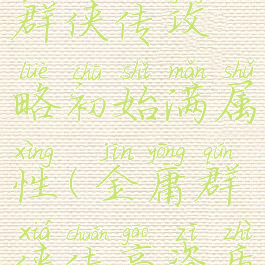 群侠传攻
lüè chū shǐ mǎn shǔ
略初始满属
xìng jīn yōng qún
性(金庸群
xiá chuán gāo zī zhì
侠传高资质